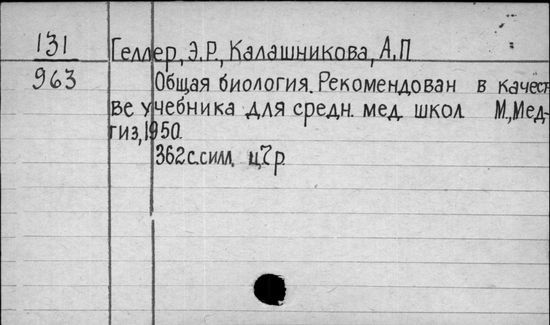 131 Геллер, Э.Р., Калашникова, А.П
963 Общая биология. Рекомендован в качест
ве учебника для средн. мед. школ М., Мед-
гиз, 1950.
362с.силл. ц.7р.